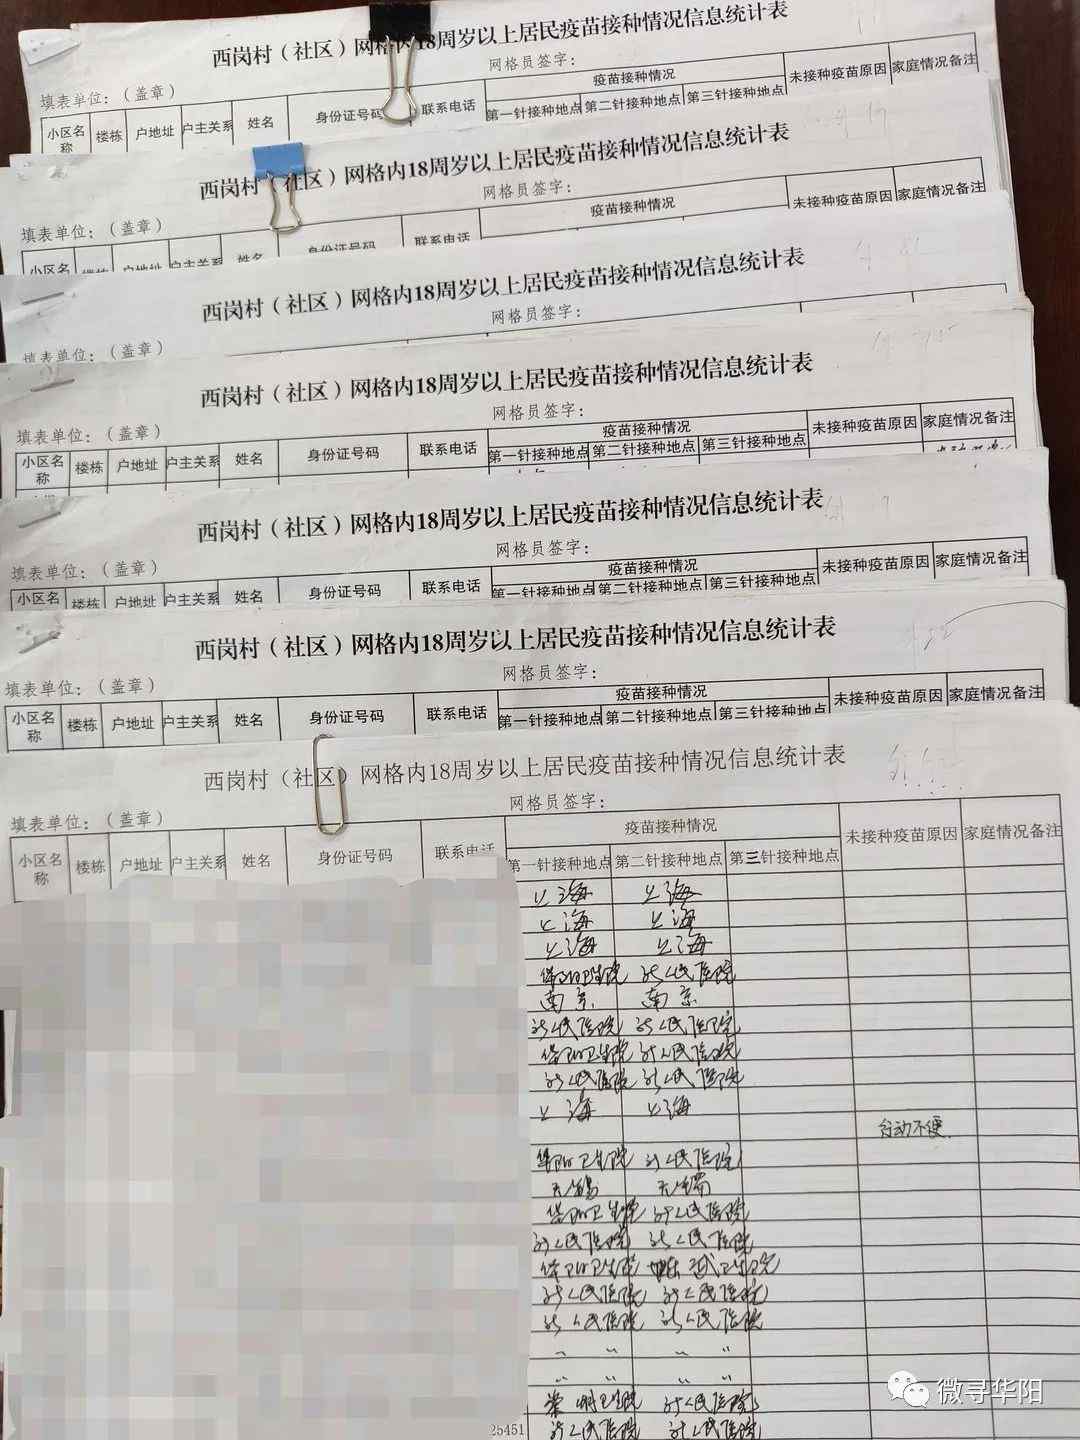 西岗村（社区）网格内18周岁以上居民疫苗接种情况信息统计表
填表单位：（盖章） 网格员签字：
小区名称 楼栋 户地址 户主关系 姓名 身份证号码 联系电话 疫苗接种情况 未接种疫苗原因 家庭情况备注
第一针接种地点 第二针接种地点 第三针接种地点
西岗村（社区）网格内18周岁以上居民疫苗接种情况信息统计表
填表单位：（盖章） 网格员签字：
小区名 户地址 户主关系 姓名 身份证号码 联系电话 疫苗接种情况 未接种疫苗原因 家庭情况备注
西岗村（社区）网格内18周岁以上居民疫苗接种情况信息统计表
填表单位：（盖章） 网格员签字：
西岗村（社区）网格内18周岁以上居民疫苗接种情况信息统计表
填表单位：（盖章） 网格员签字：
小区名称 楼栋 户地址 户主关系 姓名 身份证号码 联系电话 疫苗接种情况 未接种疫苗原因 家庭情况备注
第一针接种地点 第二针接种地点 第三针接种地点
西岗村（社区）网格内18周岁以上居民疫苗接种情况信息统计表
填表单位：（盖章） 网格员签字：
小区名 楼栋 户地址 户主关系 姓名 身份证号码 联系电话 疫苗接种情况 未接种疫苗原因 家庭情况备注
第一针接种地点 第二针接种地点 第三针接种地点
西岗村（社区）网格内18周岁以上居民疫苗接种情况信息统计表
填表单位：（盖章） 网格员签字：
小区名称 楼栋 户地址 户主关系 姓名 身份证号码 联系电话 疫苗接种情况 未接种疫苗原因 家庭情况备注
第一针接种地点 第二针接种地点 第三针接种地点
西岗村（社区）网格内18周岁以上居民疫苗接种情况信息统计表
填表单位：（盖章） 网格员签字：
小区名称 楼栋 户地址 户主关系 姓名 身份证号码 联系电话 疫苗接种情况 未接种疫苗原因 家庭情况备注
第一针接种地点 第二针接种地点 第三针接种地点
上海 上海
上海 上海
上海 上海
卫生院 人民医院
南京 南京
人民医院 人民医院
卫生院 人民医院
人民医院 人民医院
上海 上海
行动不便
卫生院 人民医院
无锡 无锡
卫生院 人民医院
人民医院 人民医院
卫生院 卫生院
人民医院 人民医院
人民医院 人民医院
〃 〃 〃 〃
〃 〃 〃 〃
卫生院 人民医院
25451 人民医院 人民医院
微寻华阳